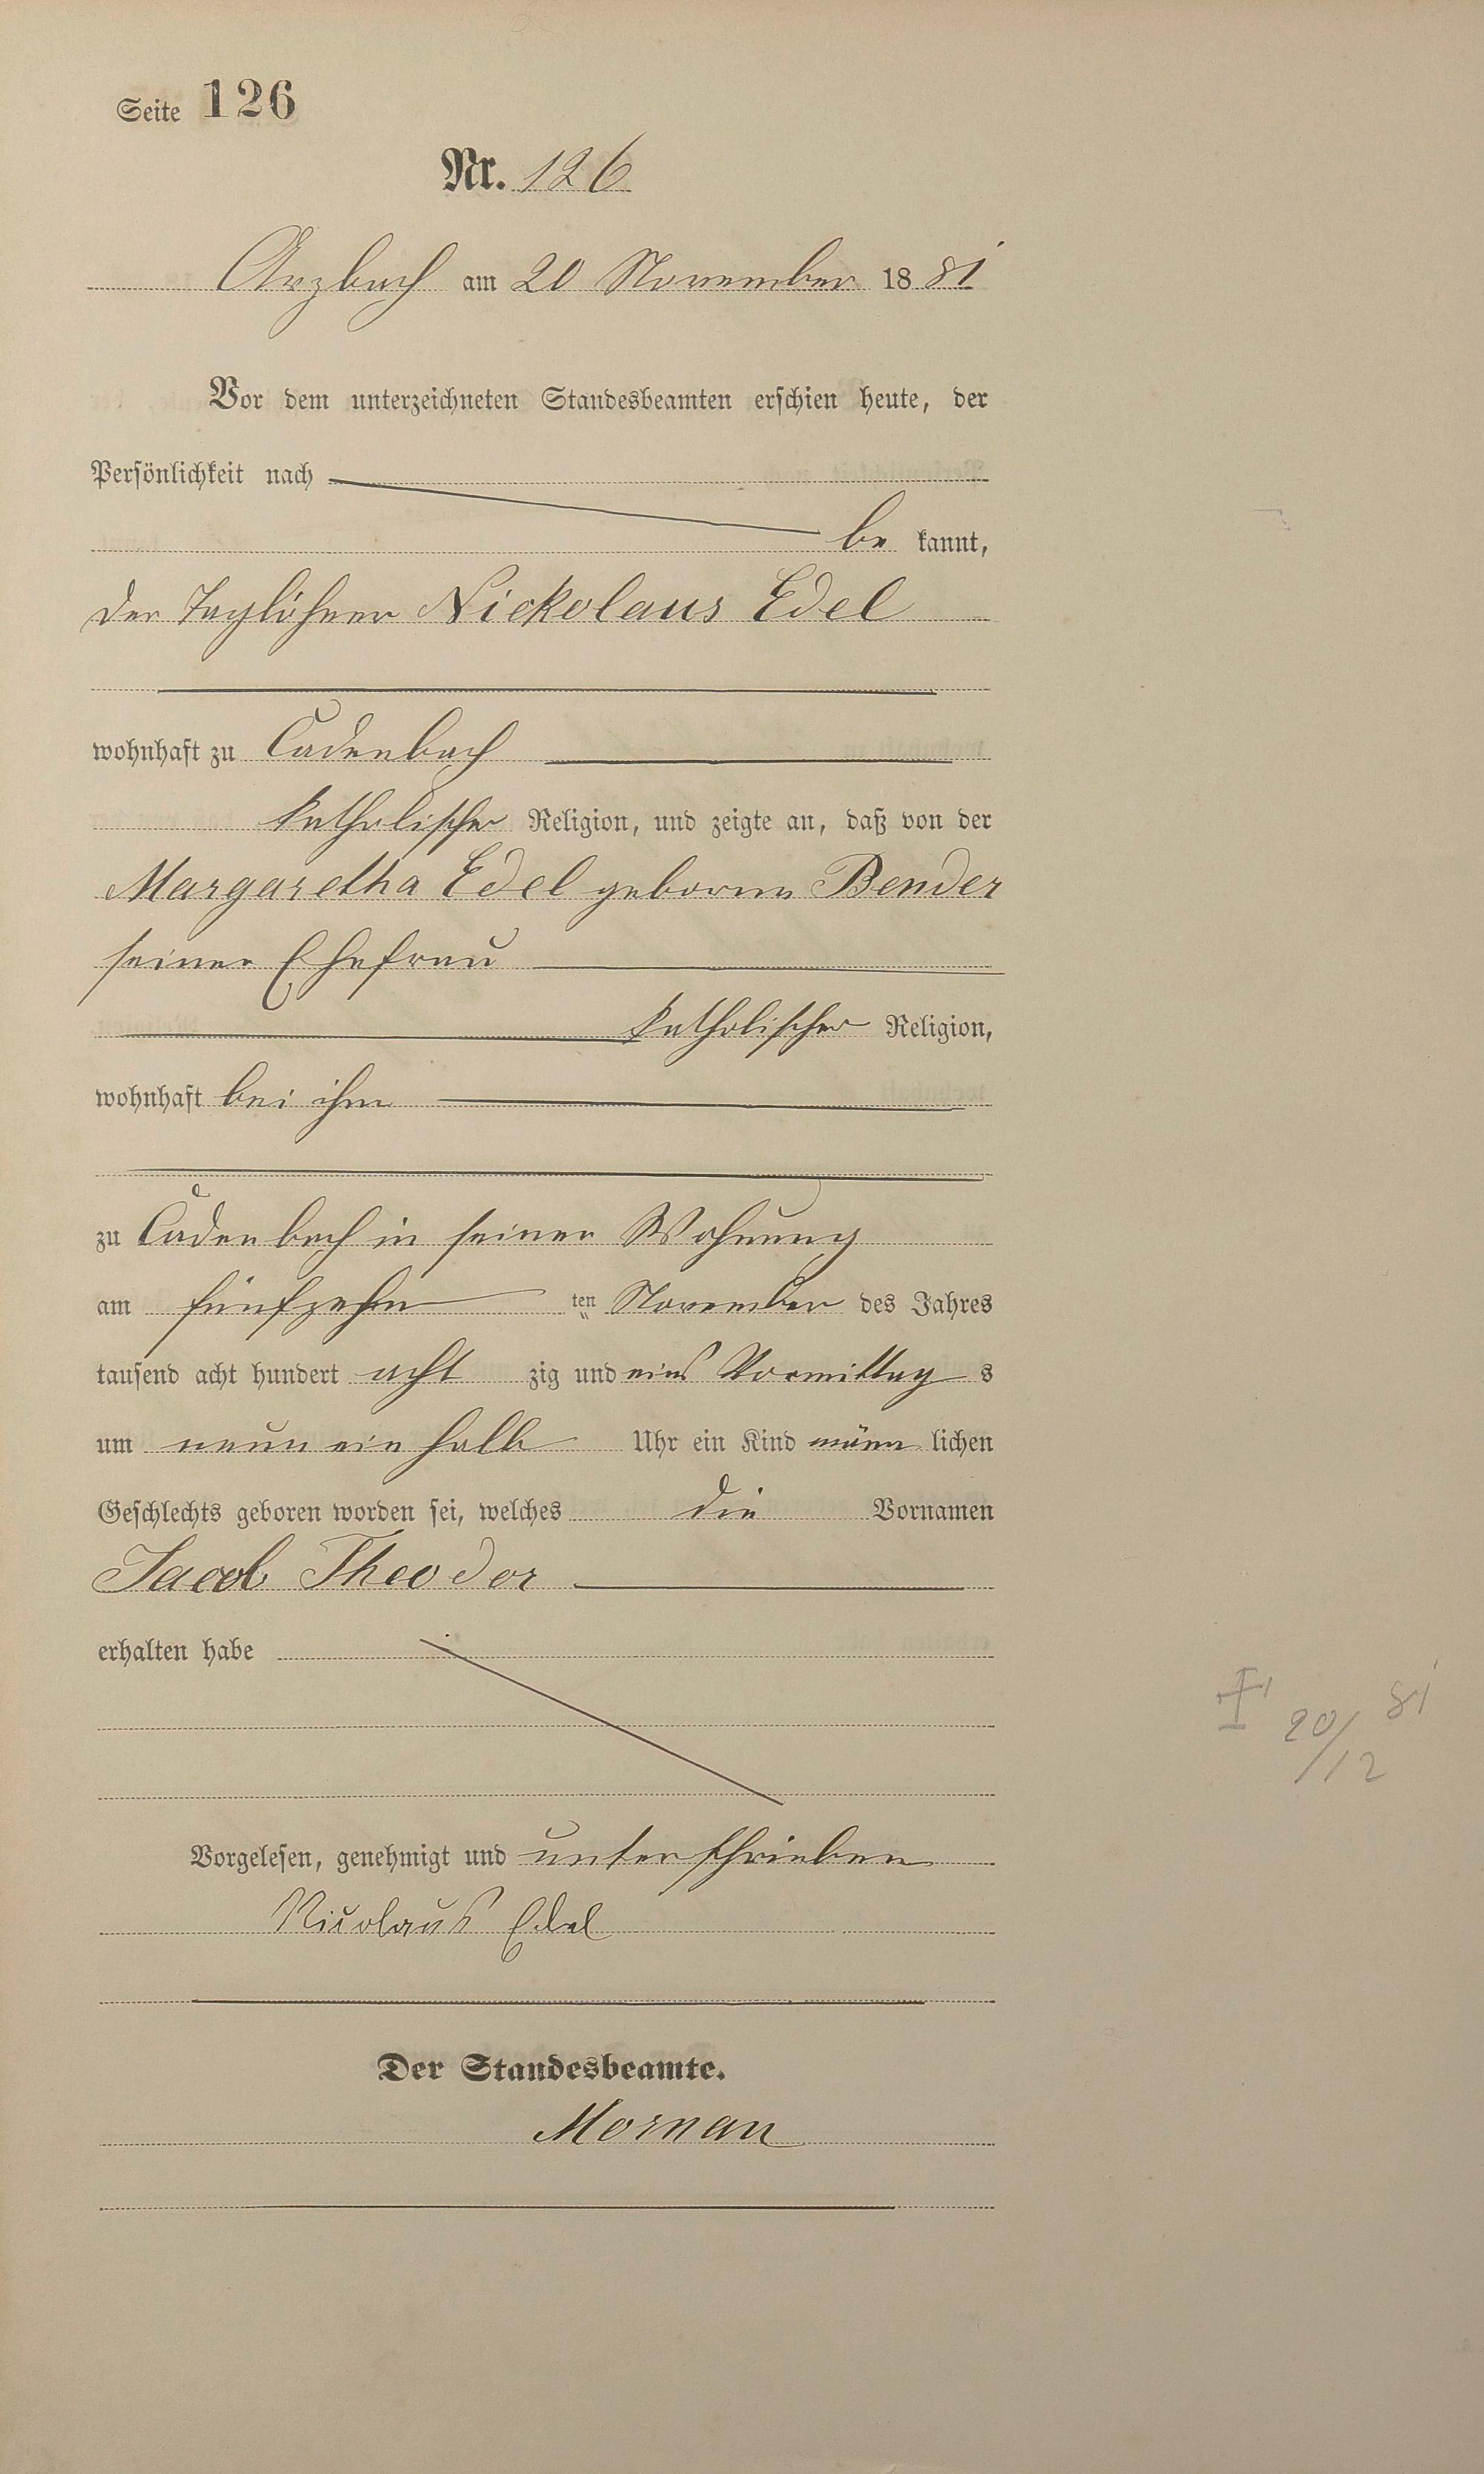 Seite 126
Nr. 126
Arzbach am 20 November 1881
Vor dem unterzeichneten Standesbeamten erschien heute, der
Persönlichkeit nach
be kannt,
der Taglöhner Nickolaus Edel
wohnhaft zu Cadenbach
katholischer Religion, und zeigte an, daß von der
Margaretha Edel geborene Bender
seiner Ehefrau
katholischer Religion,
wohnhaft bei ihm
zu Cadenbach in seiner Wohnung
am fünfzehn ten November des Jahres
tausend acht hundert acht zig und eins Vormittag s
um neun ein halb Uhr ein Kind männ lichen
Geschlechts geboren worden sei, welches die Vornamen
Jacob Theodor
erhalten habe
† 20/12 81
Vorgelesen, genehmigt und unterschrieben
Nicolaus Edel
Der Standesbeamte.
Mornau